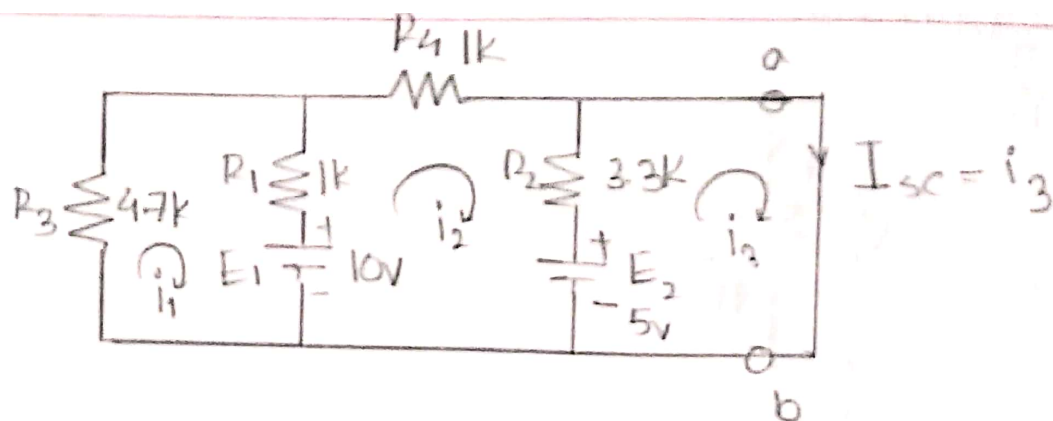 R4 1K
a
R3 4.7K
R1 1K
R2 3.3K
Isc = i3
i1
E1 10V
+
-
i2
+
-
E2
5v
i3
b